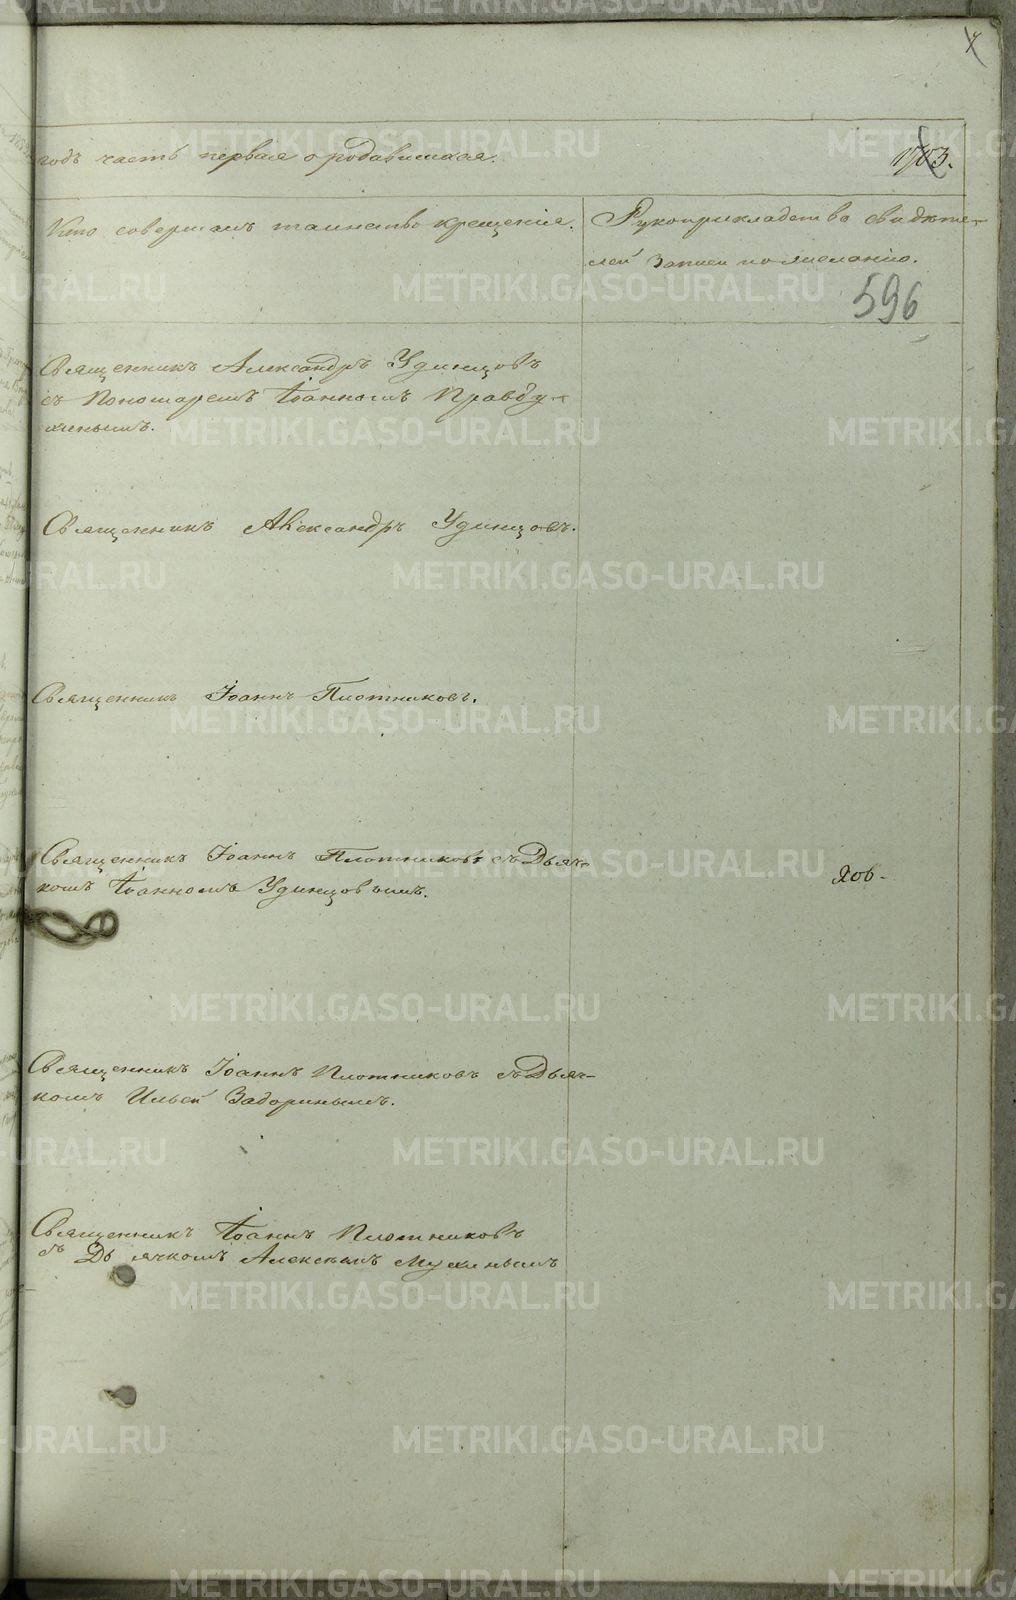 годъ часть первая о родившихся.
Кто совершалъ таинство крещенія.
Рукоприкладство свидѣте-
лей записи по желанію.
596
Священникъ Александръ Удинцовъ
съ Пономаремъ Іоанномъ Правду-
хинымъ.
Священникъ Александръ Удинцовъ.
Священникъ Іоаннъ Плотниковъ.
Священникъ Іоаннъ Плотниковъ съ Дьяч-
комъ Іоанномъ Удинцовымъ.
Священникъ Іоаннъ Плотниковъ съ Дьяч-
комъ Ильей Задоринымъ.
Священникъ Іоаннъ Плотниковъ
съ Дьячкомъ Алексѣемъ
METRIKI.GASO-URAL.RU